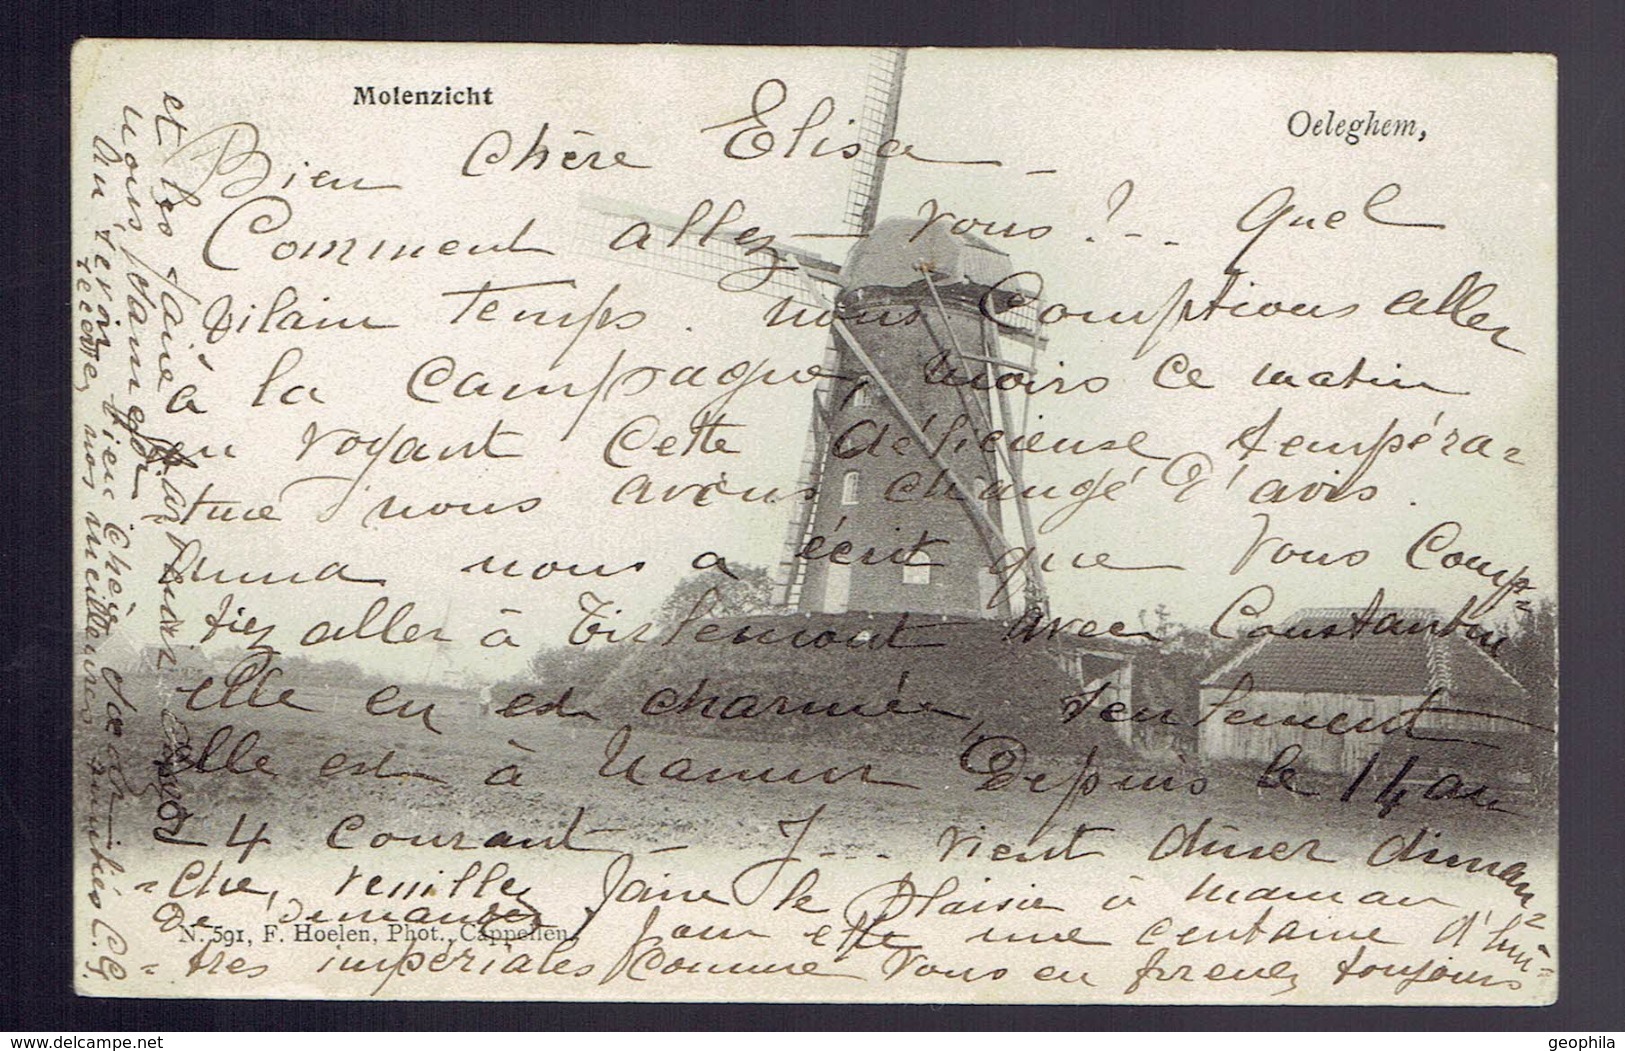 Molenzicht
Oeleghem,
Bien Chère Elisa
Comment allez-vous ?-- Quel
vilain temps. nous comptions aller
à la campagne, mais ce matin
en voyant cette délicieuse tempéra=
ture nous avons changé d'avis.
Anna nous a écrit que vous comp
tiez aller à Tirlemont avec Constantin
elle en est charmée, seulement
elle est à Namur depuis le 14 au
24 courant - J... vient dîner diman=
=che, veuillez faire le plaisir à Maman
de demander pour elle une centaine d'huî=
=tres impériales comme vous en prenez toujours
N. 591, F. Hoelen, Phot., Cappellen.
et les faire
nous
Au revoir bien chère soeur
recevez nos meilleures amitiés C. G.
geophila